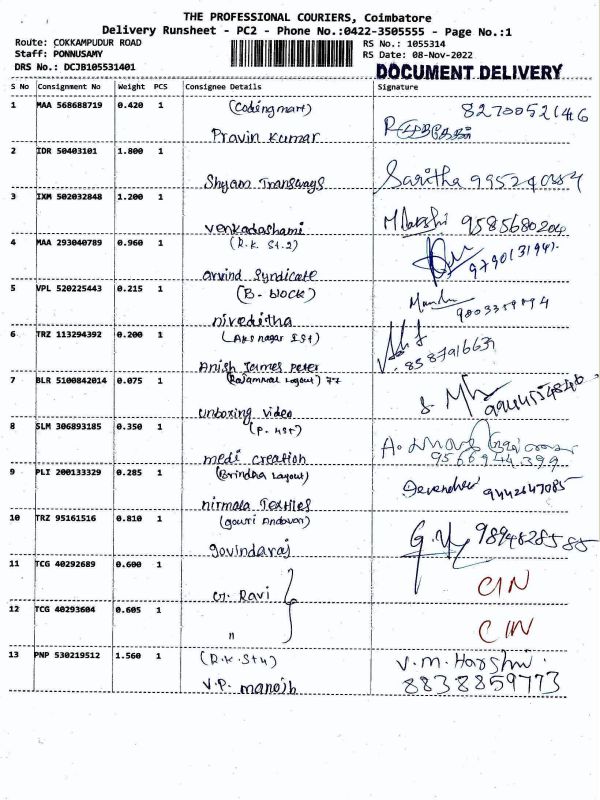 THE PROFESSIONAL COURIERS, Coimbatore
Delivery Runsheet - PC2 - Phone No.:0422-3505555 - Page No.:1
Route: COKKAMPUDUR ROAD RS No.: 1055314
Staff: PONNUSAMY RS Date: 08-Nov-2022
DRS No.: DCJB105531401 DOCUMENT DELIVERY
S No Consignment No Weight PCS Consignee Details Signature
1 MAA 568688719 0.420 1 (Codingmart) 8270052146
Pravin Kumar
2 IDR 50403101 1.800 1
Shyam Transways Saritha
3 IXM 502032848 1.200 1
Venkadashami 9585680204
(R.K. St-2)
4 MAA 293040789 0.960 1
arvind Syndicate
5 VPL 520225443 0.215 1 (B-block)
niveditha
6 TRZ 113294392 0.200 1
Anish James Peter
7 BLR 5100842014 0.075 1 (Rajammal Layout) 77
unboxing video
8 SLM 306893185 0.350 1
medi creation 9566944399
9 PLI 200133329 0.285 1 (Brindha Layout)
Devendher 9442647085
nirmala Textiles
10 TRZ 95161516 0.810 1 (gouri Andavar)
govindaraj 9894828585
11 TCG 40292689 0.600 1
Ravi CIN
12 TCG 40293604 0.605 1
" CIN
13 PNP 530219512 1.560 1 (R.K. St4) V.M. Harshni.
V.P. manojb 8838859773